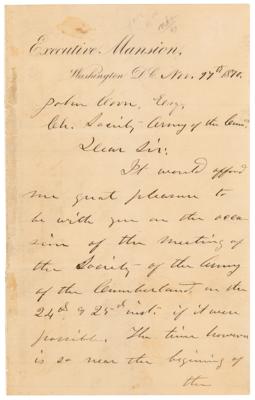 Executive Mansion,
Washington D.C. Nov. 17th 1870.
John Coon, Esq.
Ch. Society Army of the Cum.
Dear Sir:
It would afford
me great pleasure to
be with you on the occa
sion of the meeting of
the Society of the Army
of the Cumberland, on the
24th & 25th inst. if it were
possible. The time however
is so near the begining of
the